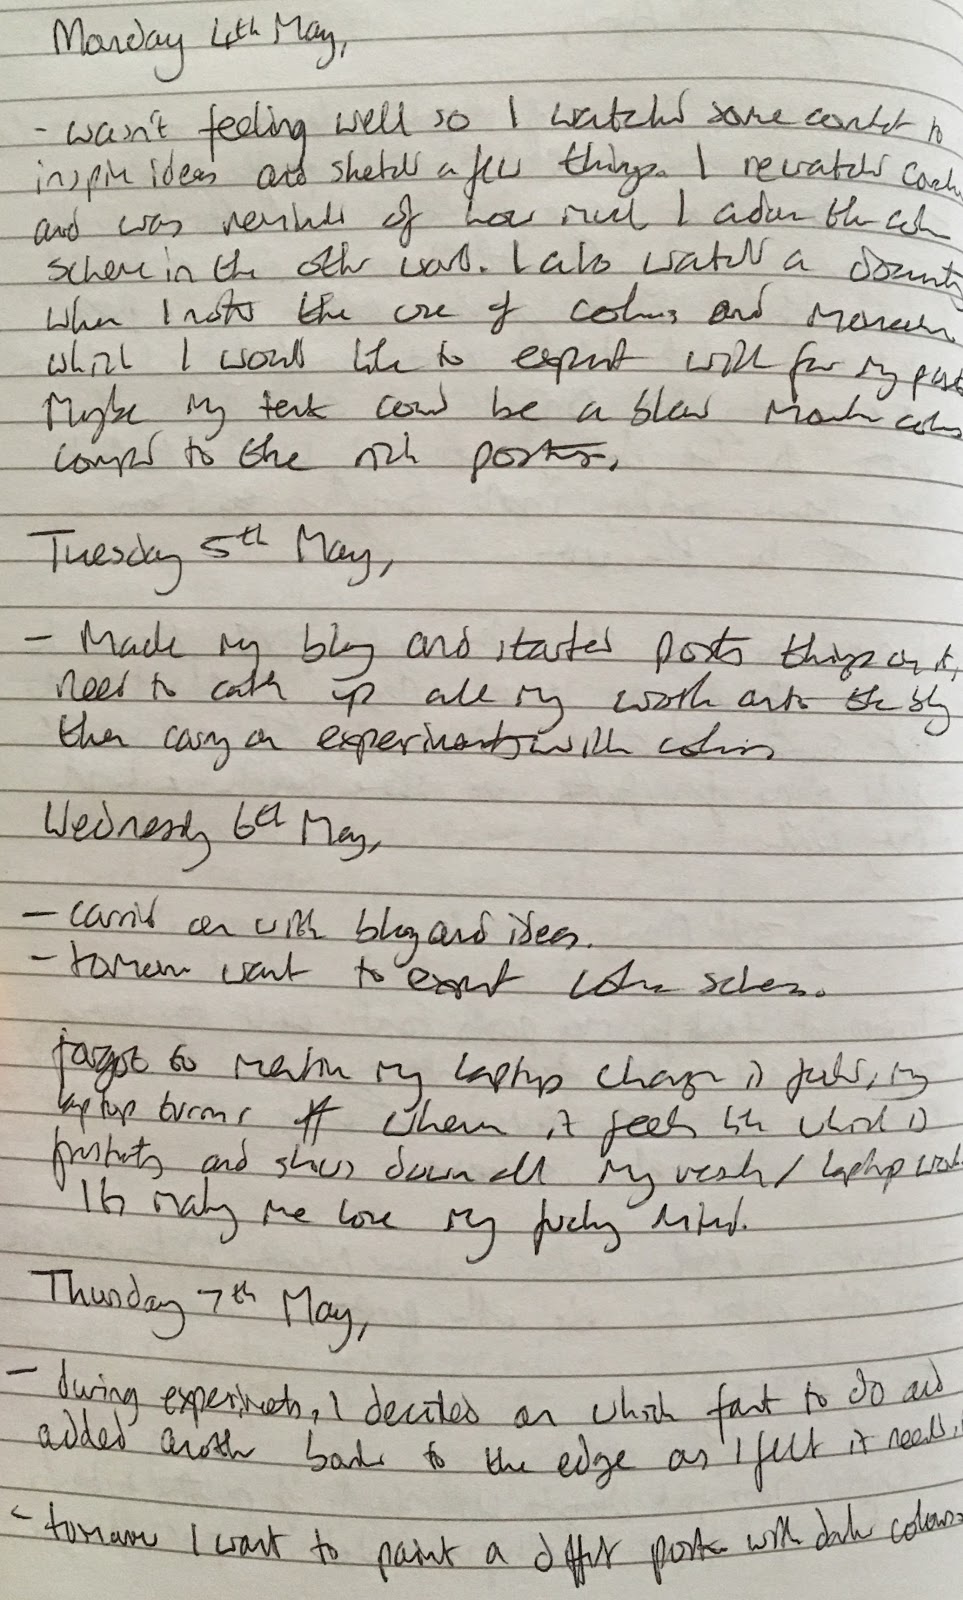 Monday 4th May,
- wasn't feeling well so I watched some content to
inspire ideas and sketch a few things. I rewatched
and was reminded of how much I adore the colour
scheme in the other world. I also watched a
when I noted the use of colours and
which I would like to experiment with for my
Maybe my text could be a colour
compared to the rich posters.
Tuesday 5th May,
- Made my blog and started posting things on it,
need to catch up all my work onto the blog
then carry on experimenting with colours
Wednesday 6th May,
- carried on with blog and ideas.
- tomorrow want to experiment colour schemes.
forgot to mention my laptop charger is fucked, my
laptop turns off when it feels like which is
frustrating and slows down all my research / laptop work
Its making me lose my fucking mind.
Thursday 7th May,
- during experiments, I decided on which font to do and
added another border to the edge as I felt it needed it
- tomorrow I want to paint a different poster with darker colours